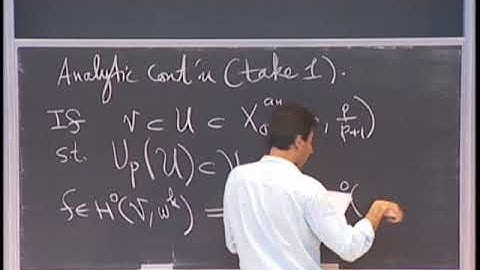 Analytic Cont'n (take 1).
If V ⊂ U ⊂ X₀ᵃⁿ , p/p+1)
st. U_p(U) ⊂ V
f ∈ H⁰(V, ω^k) = ⁰(